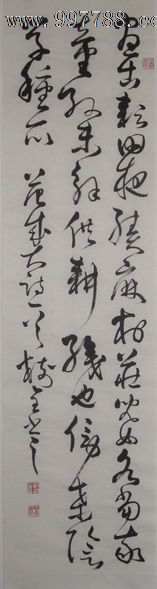 www.997788.com
晝出耘田夜績麻村莊兒女各當家
童孫未解供耕織也傍桑陰
學種瓜 范成大詩一首